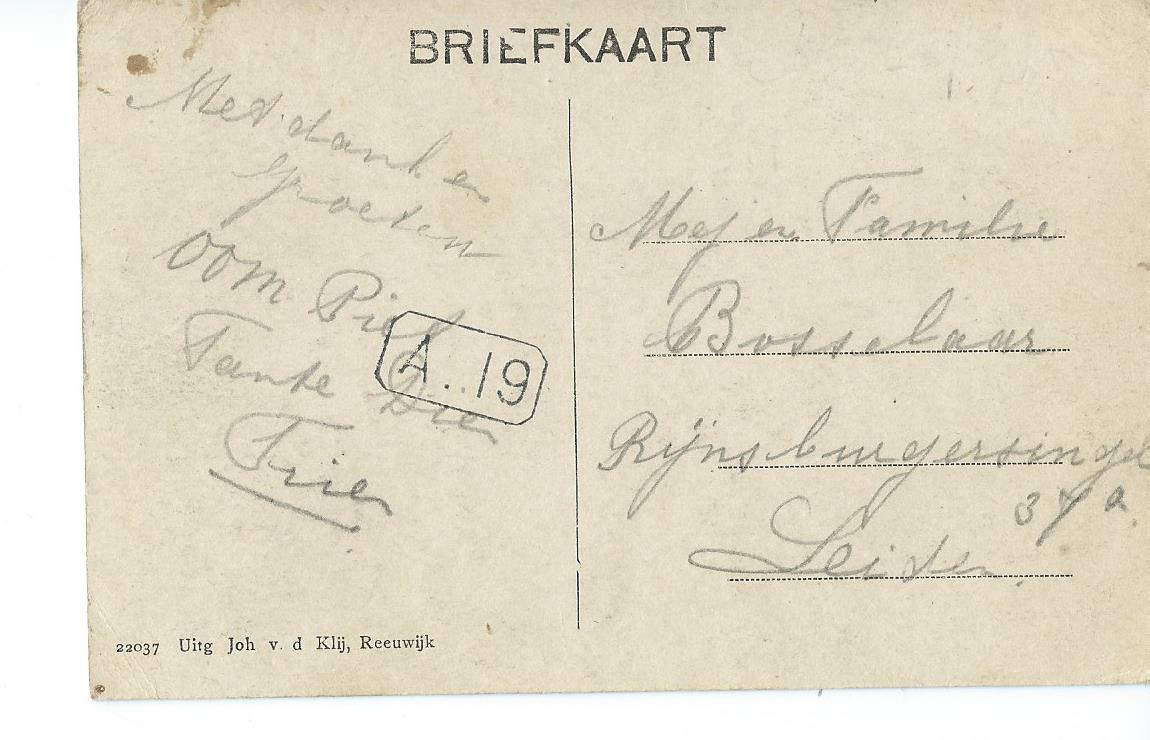 BRIEFKAART
Met dank en
groeten
Oom Piet
Tante Die
Trien
A..19
Mej en Familie
Bosselaar
Rijnsburgersingel
37a.
Leiden.
22037 Uitg Joh v. d Klij, Reeuwijk